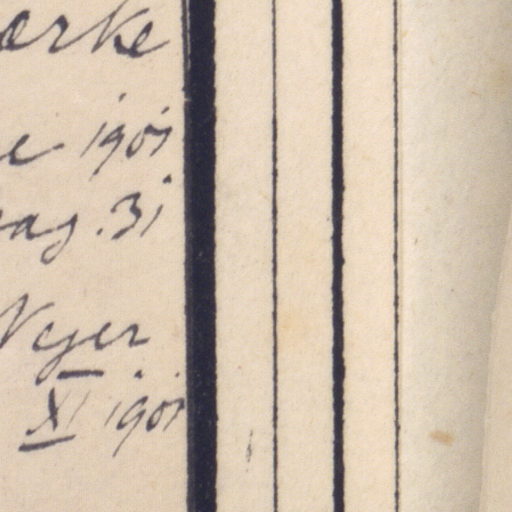 ærke
e 1901
ag. 31
Vejer
XI 1901